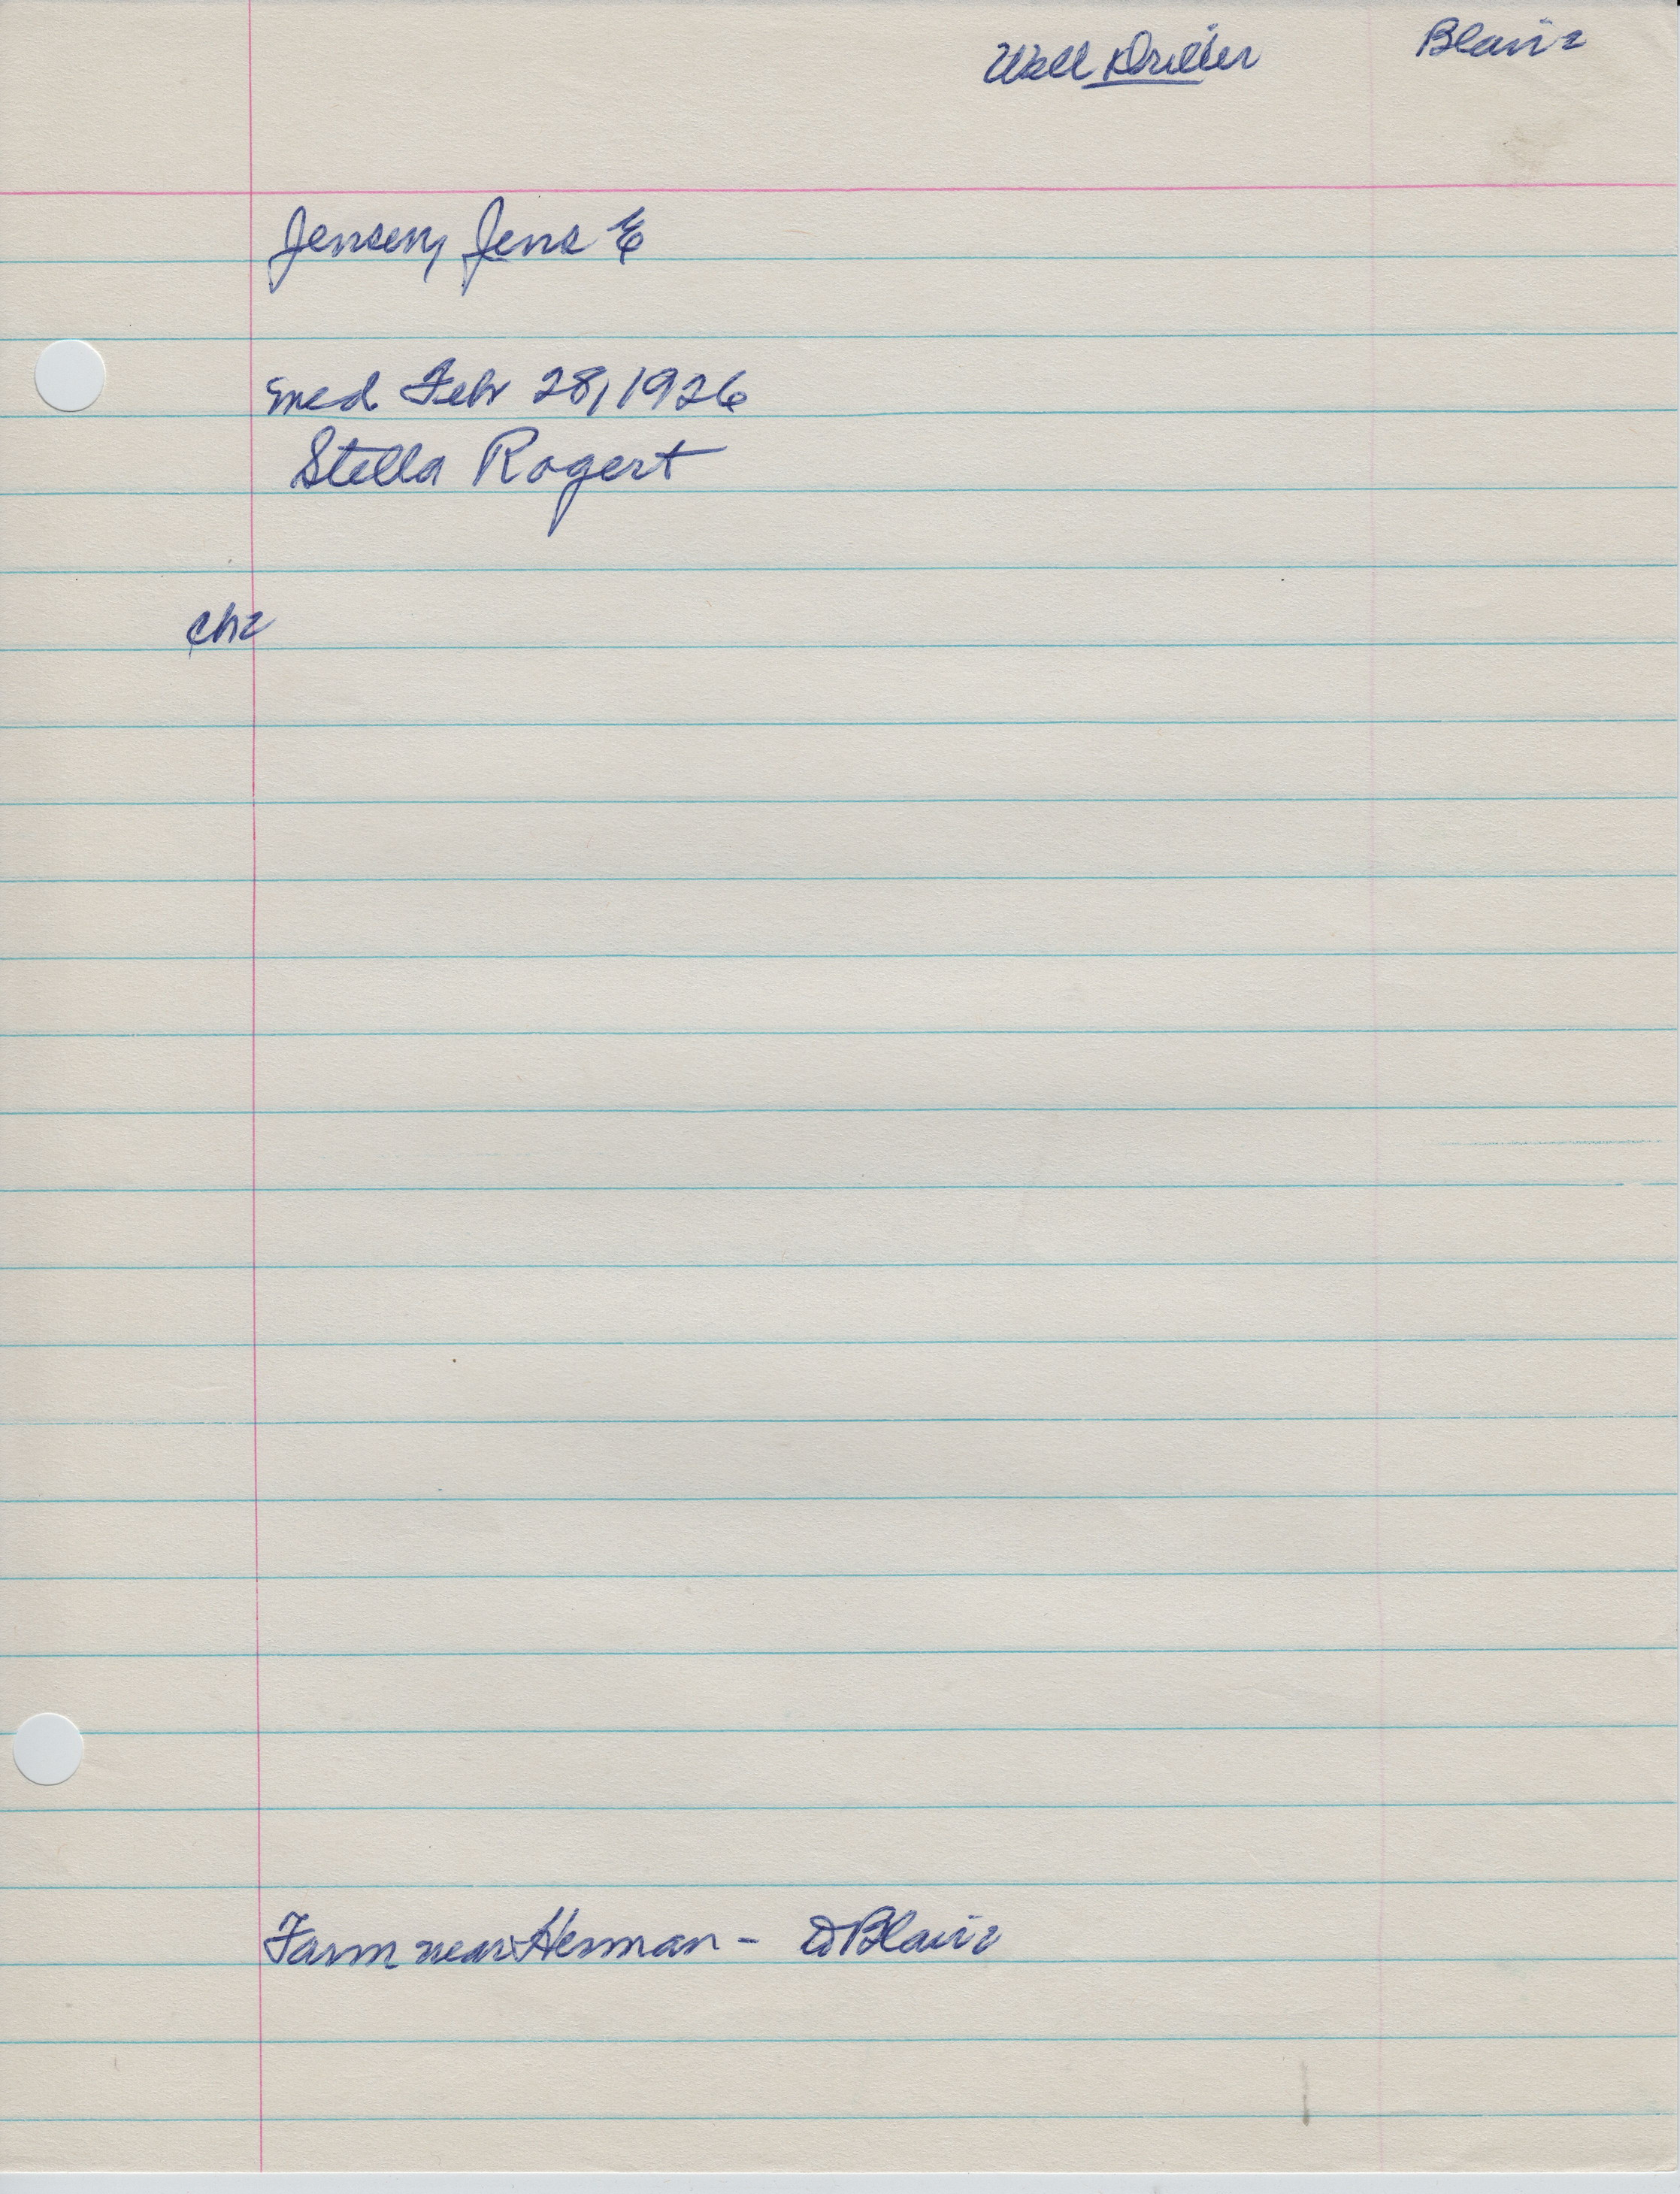 Well Driller Blair
Jensen, Jens E
md Feb 28, 1926
Stella Rogert
ch
Farm near Herman - Blair